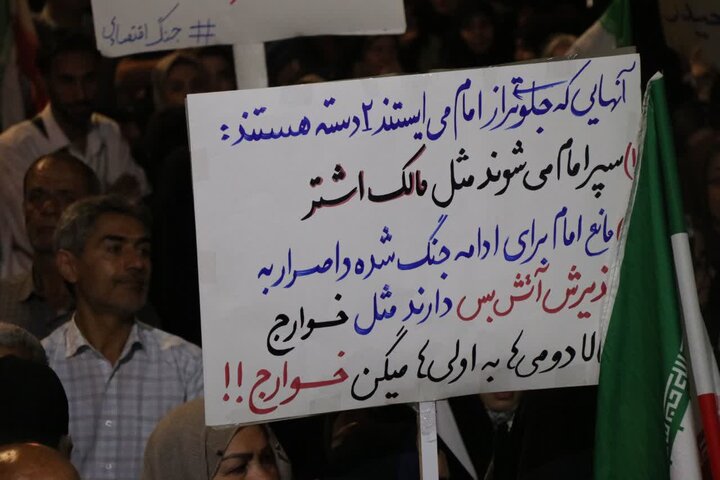 #جنگ اقتصادی
آنهایی که جلوتر از امام می ایستند ۲ دسته هستند:
۱) سپر امام می شوند مثل مالک اشتر
مانع امام برای ادامه جنگ شده و اصرار به
پذیرش آتش بس دارند مثل خوارج
حالا دومی ها به اولی ها میگن خوارج!!